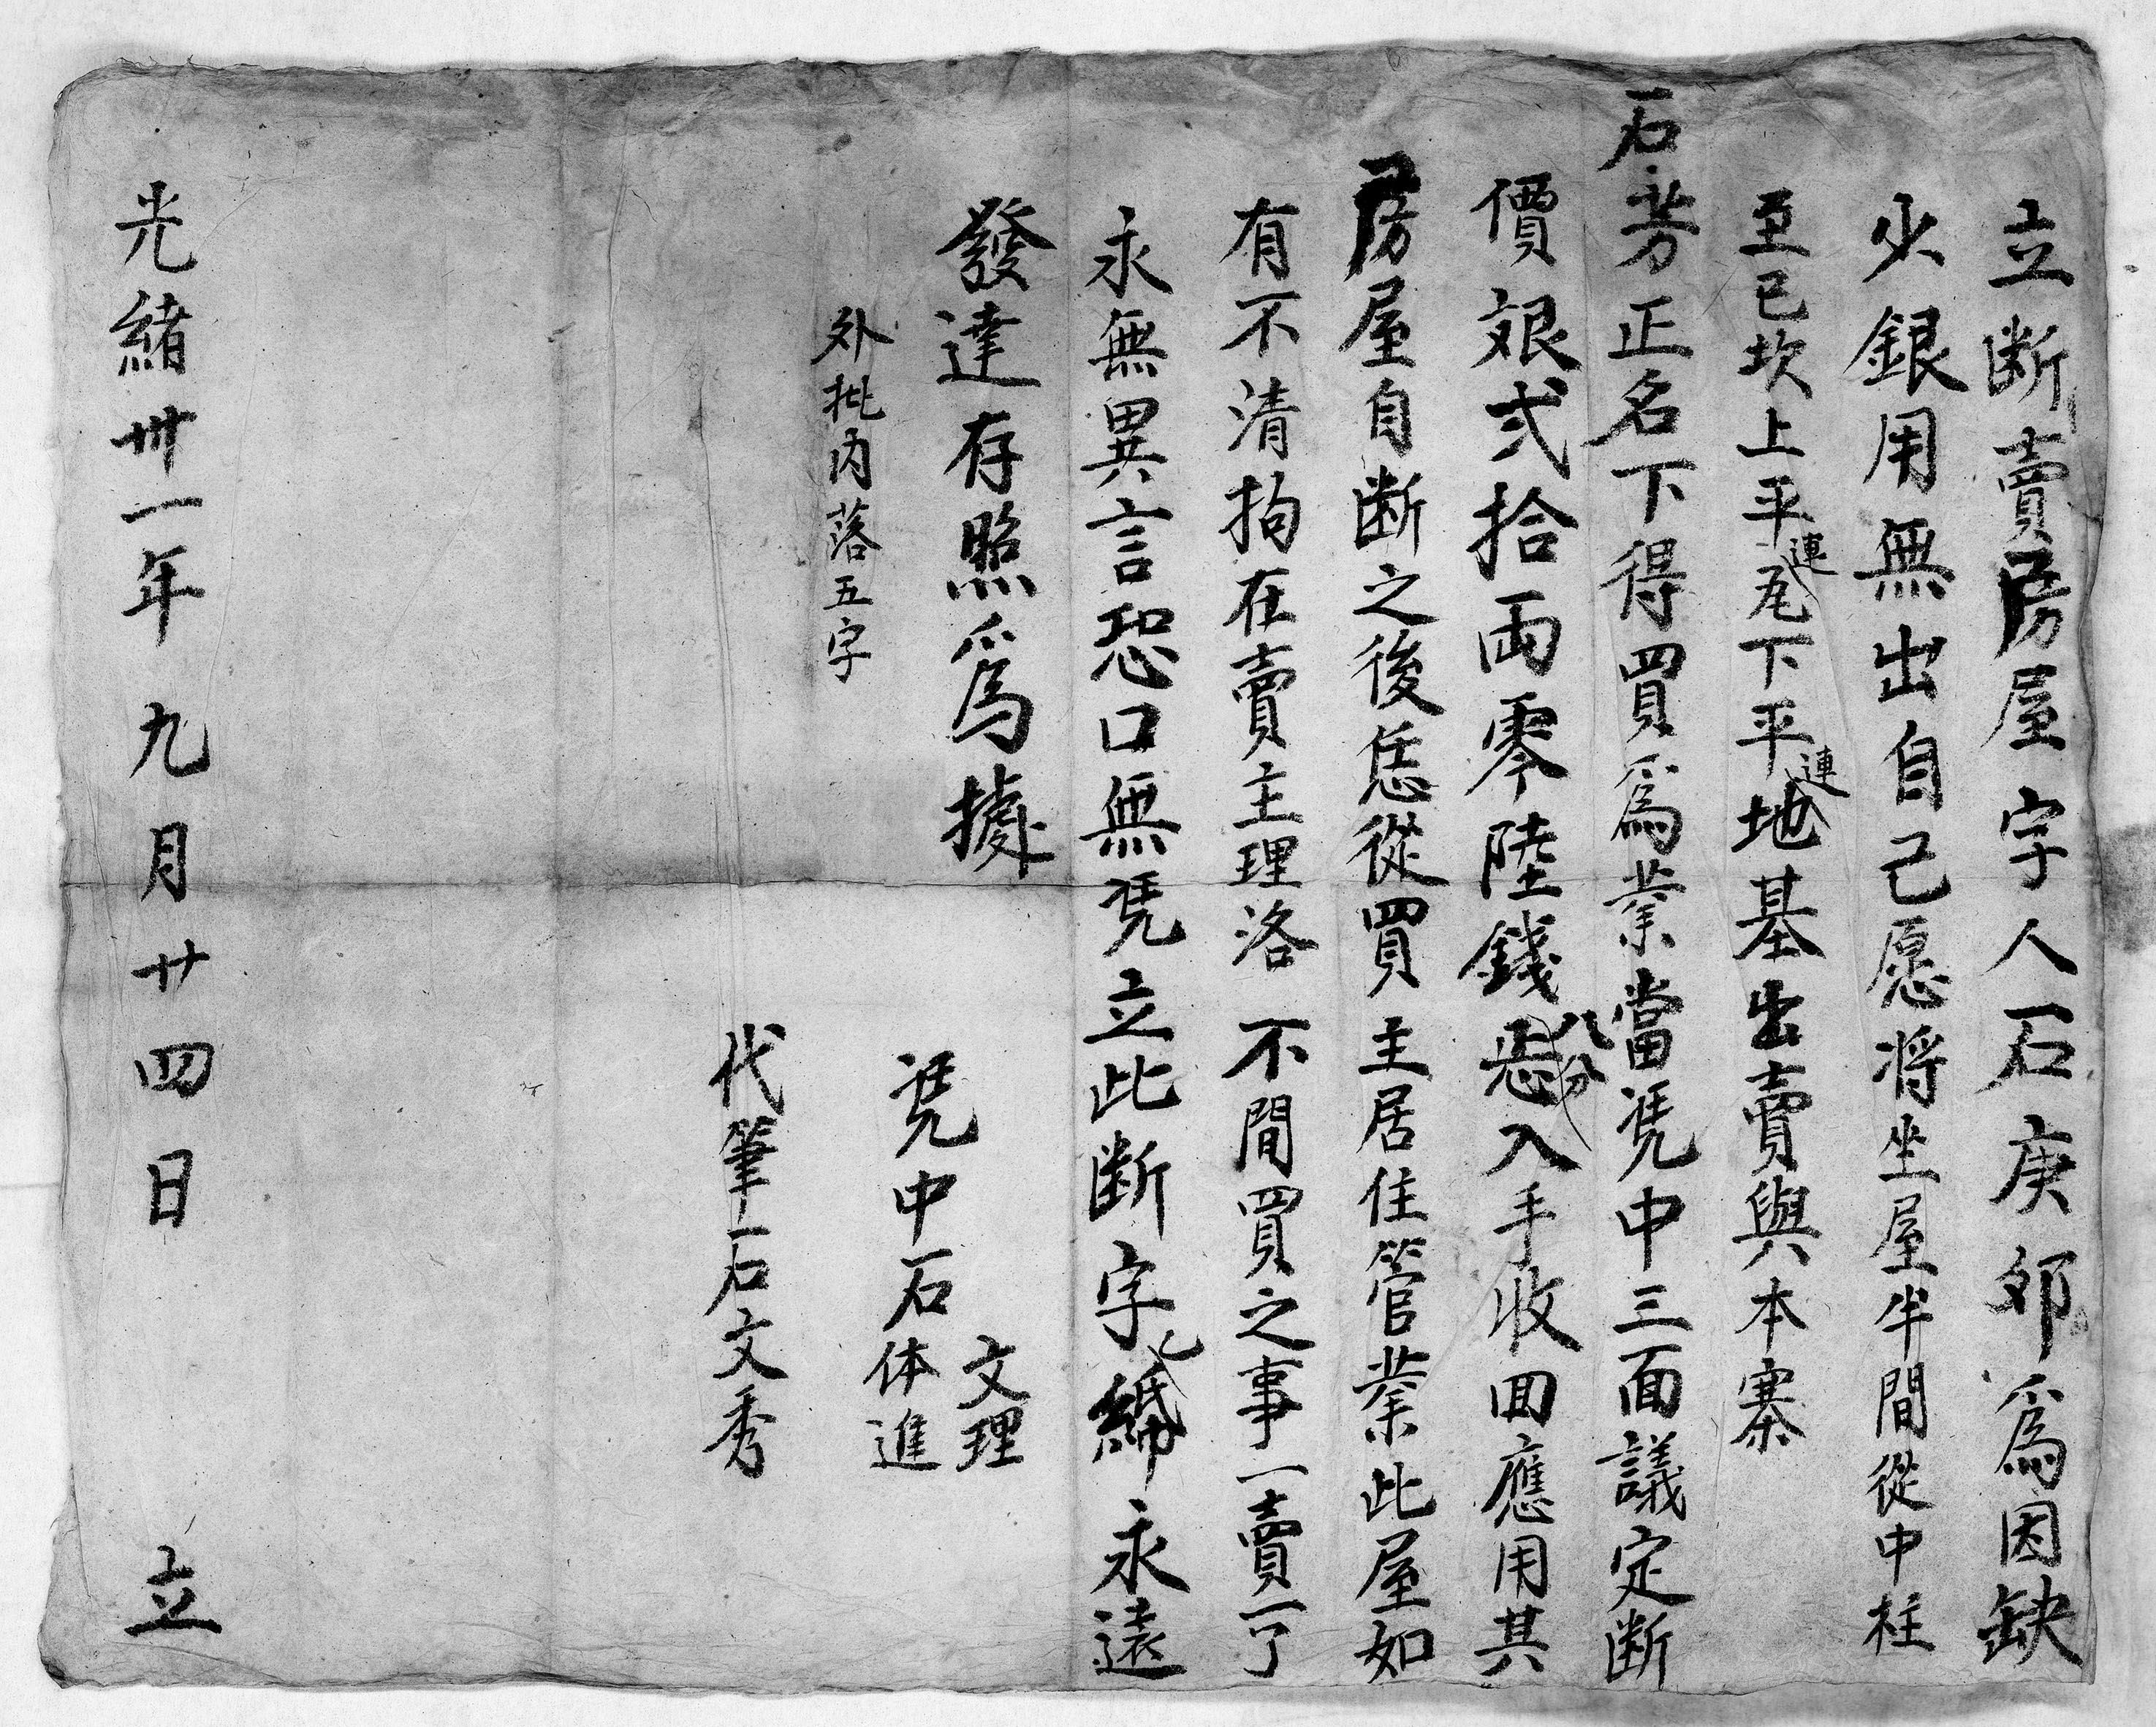 立断賣房屋字人石庚邜爲因缺
少銀用無出自己愿将坐屋半間從中柱
至已坎上平連瓦下平連地基出賣與本寨
石芳正名下得買爲業當凴中三面議定断
價艮弍拾両零陸錢八分悉入手收囬應用其
房屋自断之後恁從買主居住管業此屋如
有不清拘在賣主理洛不間買之事一賣一了
永無異言恐口無凴立此断字乙紙永遠
發達存照爲據
外批内落五字
凴中石文理
体進
代筆石文秀
光緒卅一年九月廿四日立